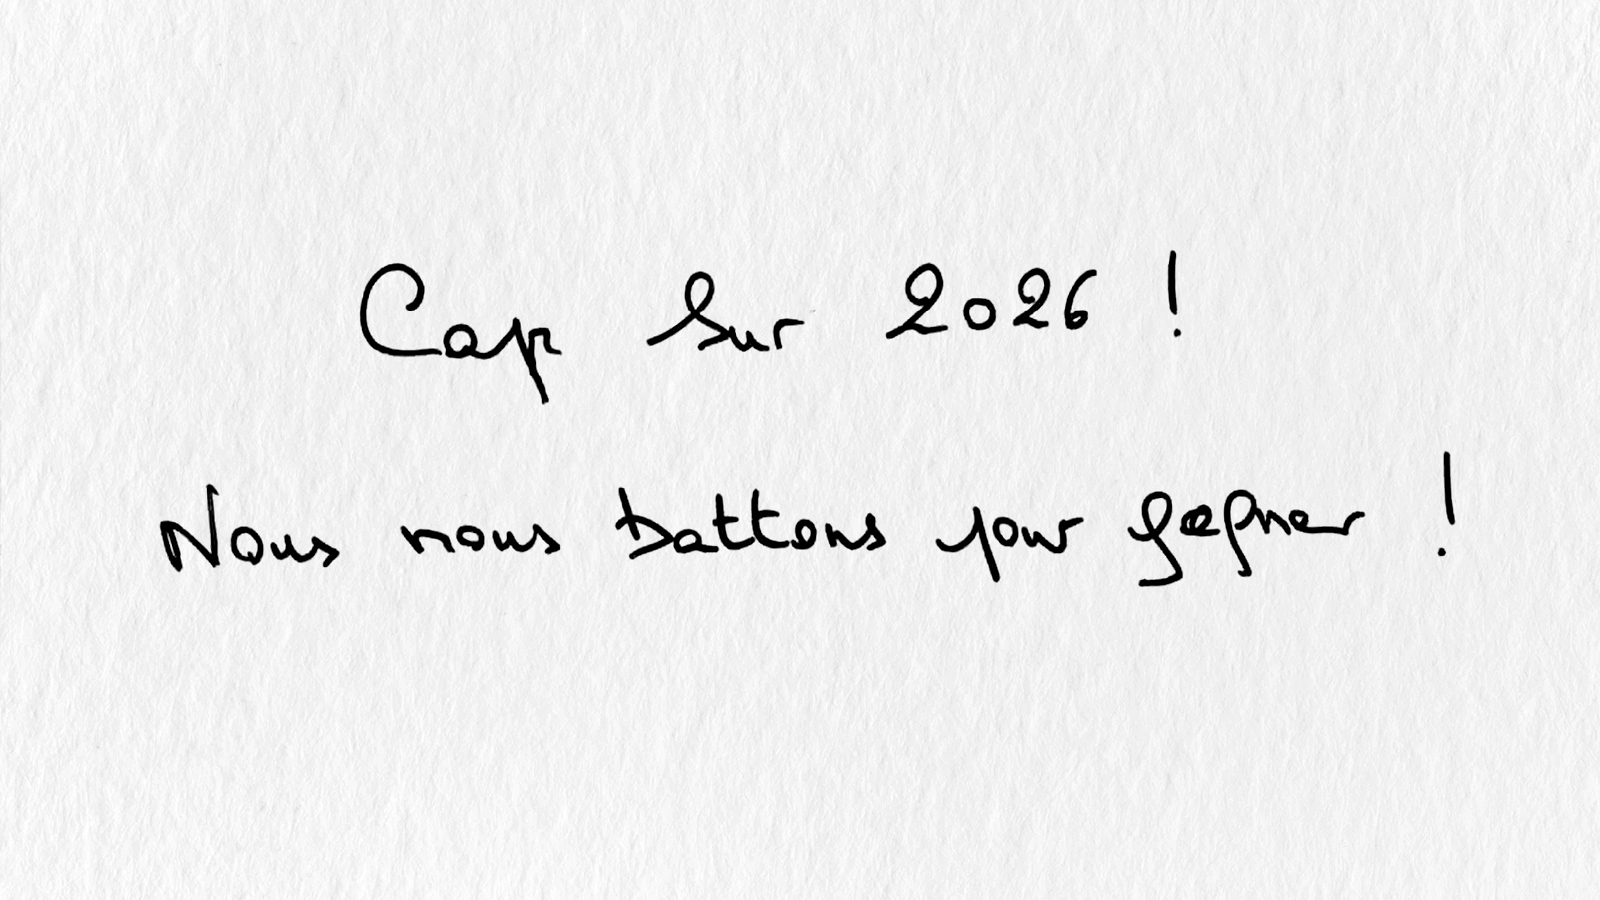 Cap sur 2026 !
Nous nous battons pour gagner !